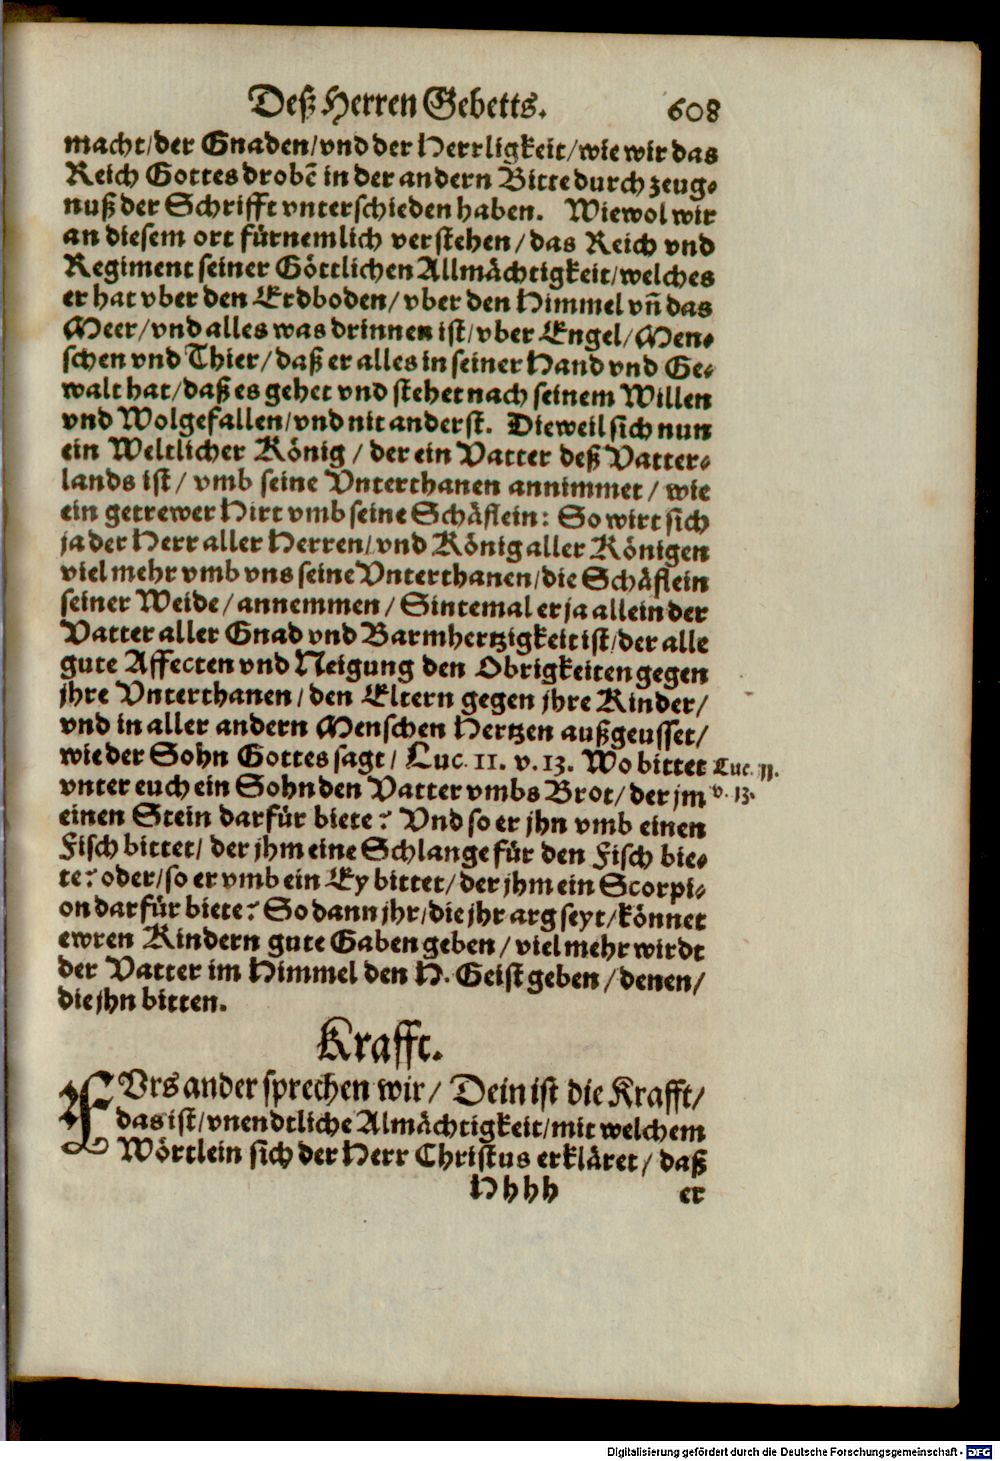 Deß Herren Gebetts. 608
macht/der Gnaden/vnd der Herrligkeit/wie wir das
Reich Gottes drobē in der andern Bitte durch zeug-
nuß der Schrifft vnterschieden haben. Wiewol wir
an diesem ort fürnemlich verstehen/das Reich vnd
Regiment seiner Göttlichen Allmächtigkeit/welches
er hat vber den Erdboden/vber den Himmel vñ das
Meer/vnd alles was drinnen ist/vber Engel/Men-
schen vnd Thier/daß er alles in seiner Hand vnd Ge-
walt hat/daß es gehet vnd stehet nach seinem Willen
vnd Wolgefallen/vnd nit anderst. Dieweil sich nun
ein Weltlicher König/der ein Vatter deß Vatter-
lands ist/vmb seine Vnterthanen annimmet/wie
ein getrewer Hirt vmb seine Schäflein: So wirt sich
ja der Herr aller Herren/vnd König aller Königen
viel mehr vmb vns seine Vnterthanen/die Schäflein
seiner Weide/annemmen/Sintemal er ja allein der
Vatter aller Gnad vnd Barmhertzigkeit ist/der alle
gute Affecten vnd Neigung den Obrigkeiten gegen
jhre Vnterthanen/den Eltern gegen jhre Kinder/
vnd in aller andern Menschen Hertzen außgeusset/
wie der Sohn Gottes sagt/Luc. 11. v. 13. Wo bittet
Luc. 11.
vnter euch ein Sohn den Vatter vmbs Brot/der jm
v. 13.
einen Stein darfür biete? Vnd so er jhn vmb einen
Fisch bittet/der jhm eine Schlange für den Fisch bie-
te? oder/so er vmb ein Ey bittet/der jhm ein Scorpi-
on darfür biete? So dann jhr/die jhr arg seyt/könnet
ewren Kindern gute Gaben geben/viel mehr wirdt
der Vatter im Himmel den H. Geist geben/denen/
die jhn bitten.
Krafft.
FVrs ander sprechen wir/Dein ist die Krafft/
das ist/vnendtliche Almächtigkeit/mit welchem
Wörtlein sich der Herr Christus erkläret/daß
Hhhh er
Digitalisierung gefördert durch die Deutsche Forschungsgemeinschaft - DFG